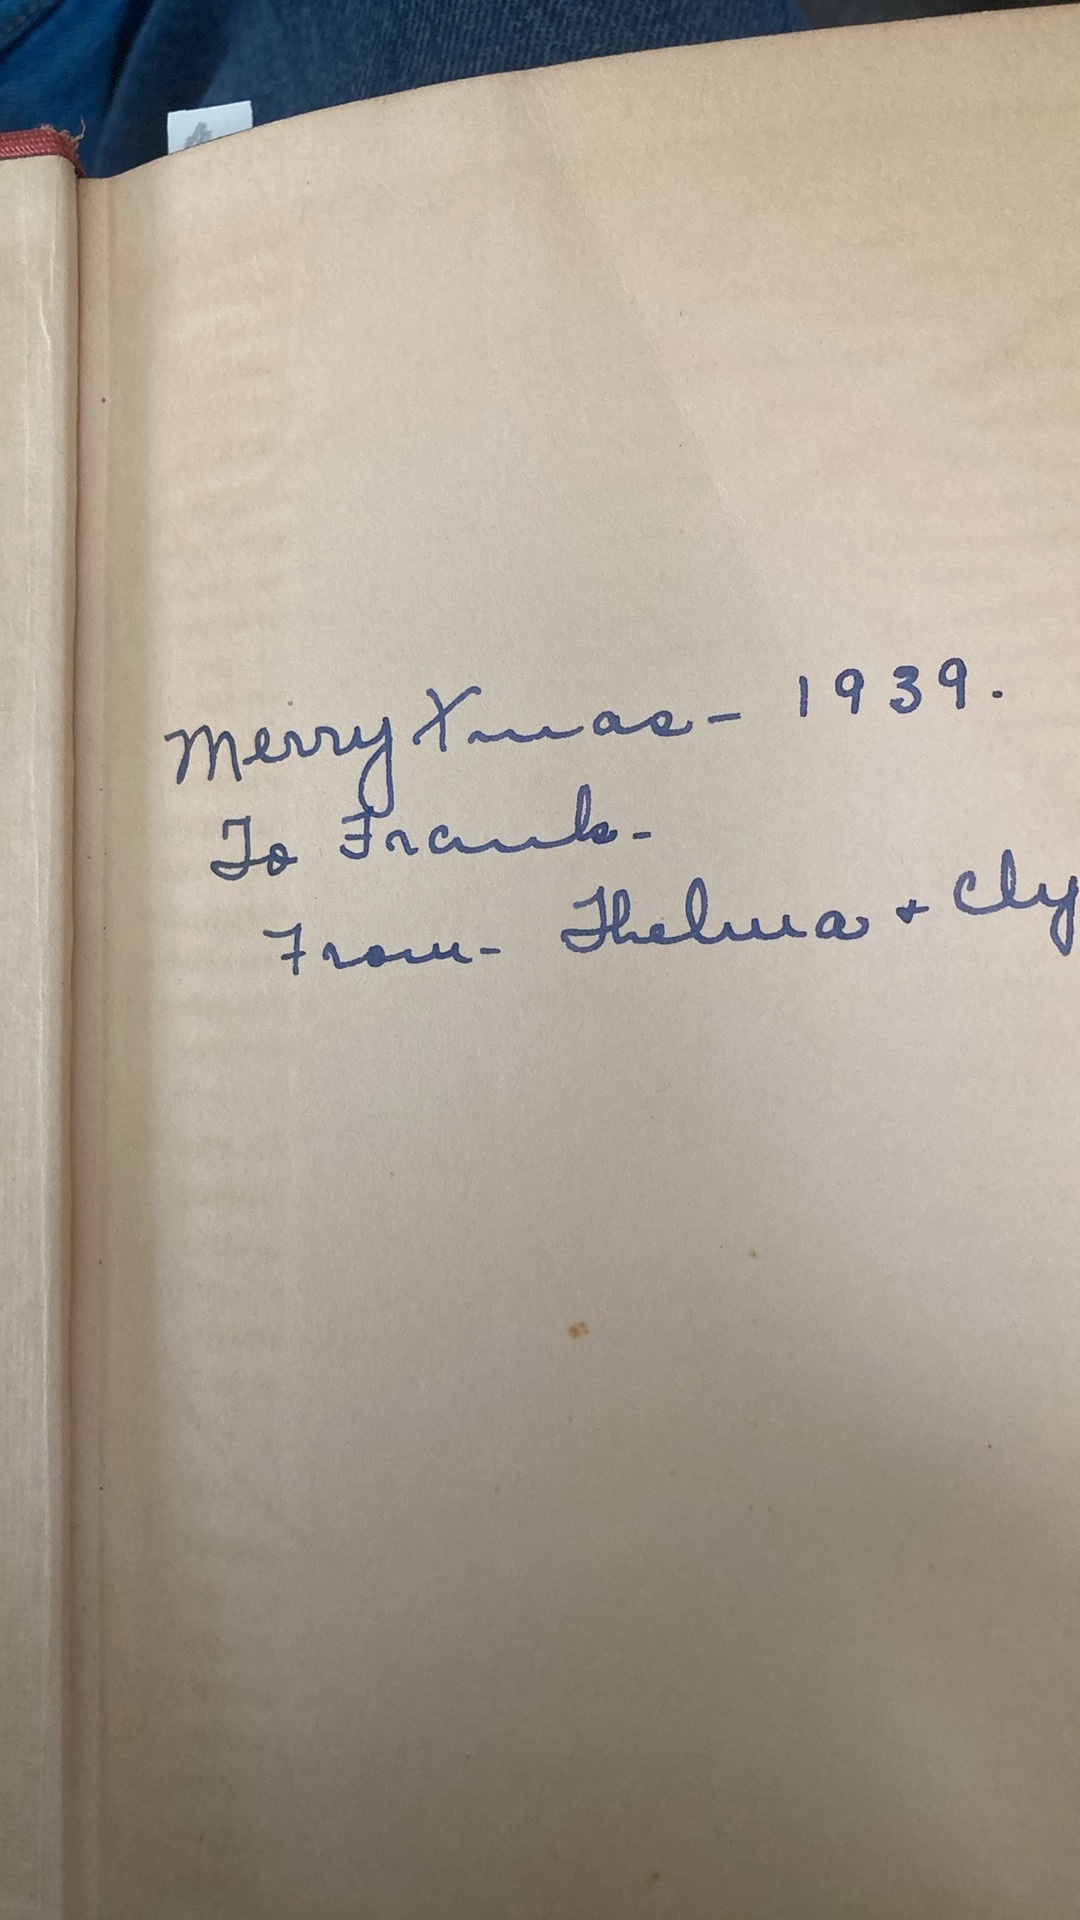 Merry Xmas - 1939.
To Frank -
From - Thelma + Cly